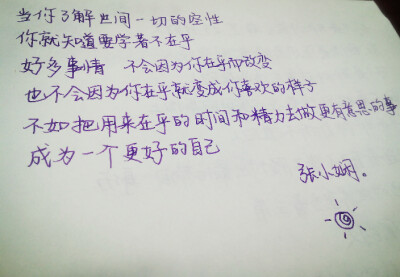 当你了解世间一切的空性
你就知道要学着不在乎
好多事情 不会因为你在乎而改变
也不会因为你在乎就变成你喜欢的样子
不如把用来在乎的时间和精力去做更有意思的事
成为一个更好的自己
张小娴。